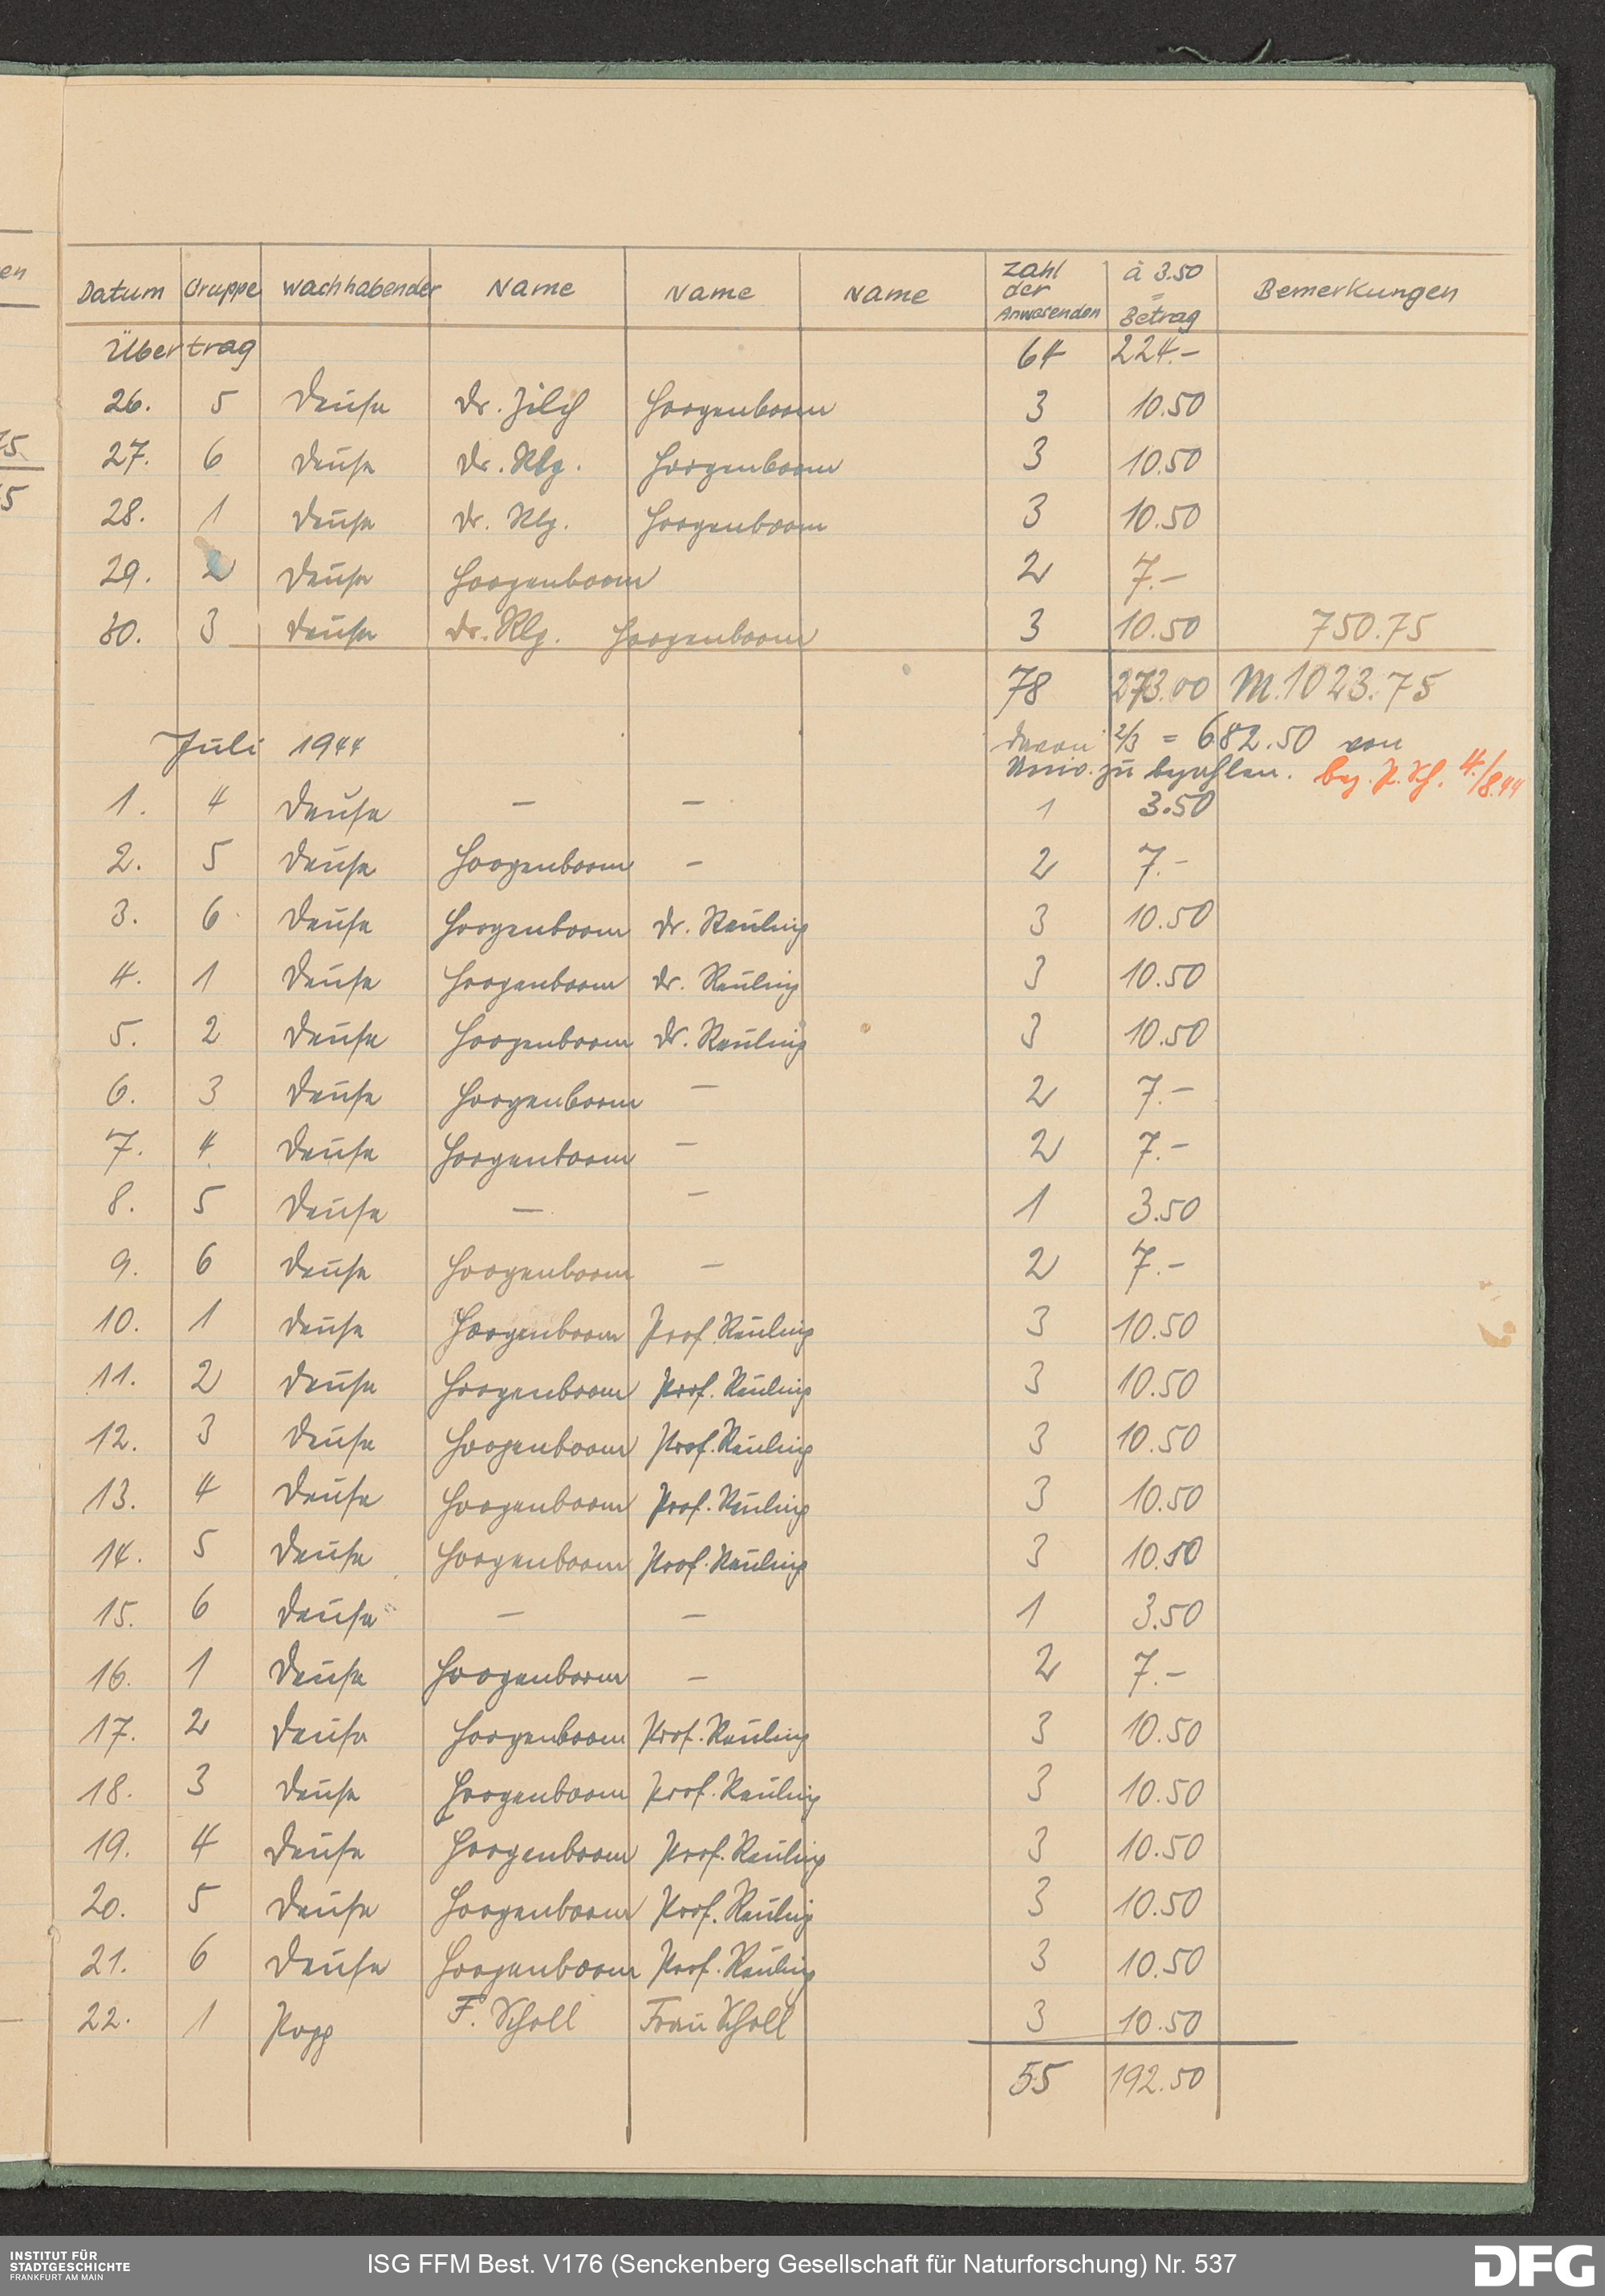 en
75.
75
Datum Gruppe Wachhabender Name Name Name Zahl der Anwesenden à 3.50 = Betrag Bemerkungen
Übertrag 64 224.-
26. 5 Deuse Dr. Zilch Hoogenboom 3 10.50
27. 6 Deuse Dr. Klg. Hoogenboom 3 10.50
28. 1 Deuse Dr. Klg. Hoogenboom 3 10.50
29. 2 Deuse Hoogenboom 2 7.-
30. 3 Deuse Dr. Klg. Hoogenboom 3 10.50 750.75
78 273.00 M. 1023.75
Juli 1944 davon 2/3 = 682.50 von
Univ. zu bezahlen. bez. P. Sch. 4./8.44
1. 4 Deuse - - 1 3.50
2. 5 Deuse Hoogenboom - 2 7.-
3. 6 Deuse Hoogenboom Dr. Reuling 3 10.50
4. 1 Deuse Hoogenboom Dr. Reuling 3 10.50
5. 2 Deuse Hoogenboom Dr. Reuling 3 10.50
6. 3 Deuse Hoogenboom - 2 7.-
7. 4 Deuse Hoogenboom - 2 7.-
8. 5 Deuse - - 1 3.50
9. 6 Deuse Hoogenboom - 2 7.-
10. 1 Deuse Hoogenboom Prof. Reuling 3 10.50
11. 2 Deuse Hoogenboom Prof. Reuling 3 10.50
12. 3 Deuse Hoogenboom Prof. Reuling 3 10.50
13. 4 Deuse Hoogenboom Prof. Reuling 3 10.50
14. 5 Deuse Hoogenboom Prof. Reuling 3 10.50
15. 6 Deuse - - 1 3.50
16. 1 Deuse Hoogenboom - 2 7.-
17. 2 Deuse Hoogenboom Prof. Reuling 3 10.50
18. 3 Deuse Hoogenboom Prof. Reuling 3 10.50
19. 4 Deuse Hoogenboom Prof. Reuling 3 10.50
20. 5 Deuse Hoogenboom Prof. Reuling 3 10.50
21. 6 Deuse Hoogenboom Prof. Reuling 3 10.50
22. 1 Popp F. Scholl Frau Scholl 3 10.50
55 192.50
INSTITUT FÜR
STADTGESCHICHTE
FRANKFURT AM MAIN
ISG FFM Best. V176 (Senckenberg Gesellschaft für Naturforschung) Nr. 537
DFG